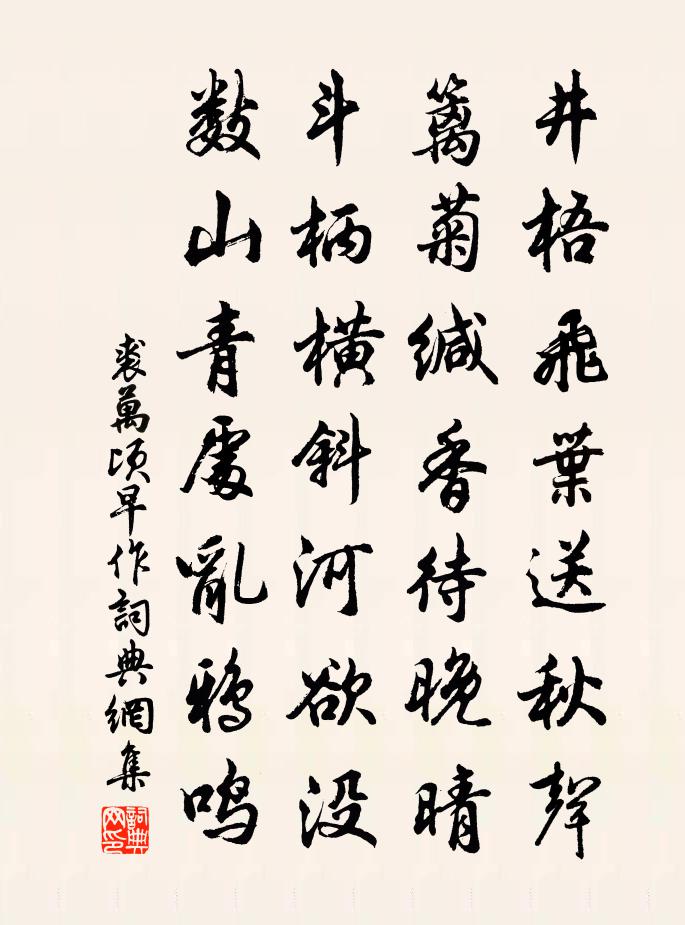 井梧飛葉送秋聲
篱菊緘香待晚晴
斗柄橫斜河欲没
数山青處亂鴉鳴
裘萬顷早作詞典網集
詞典网印